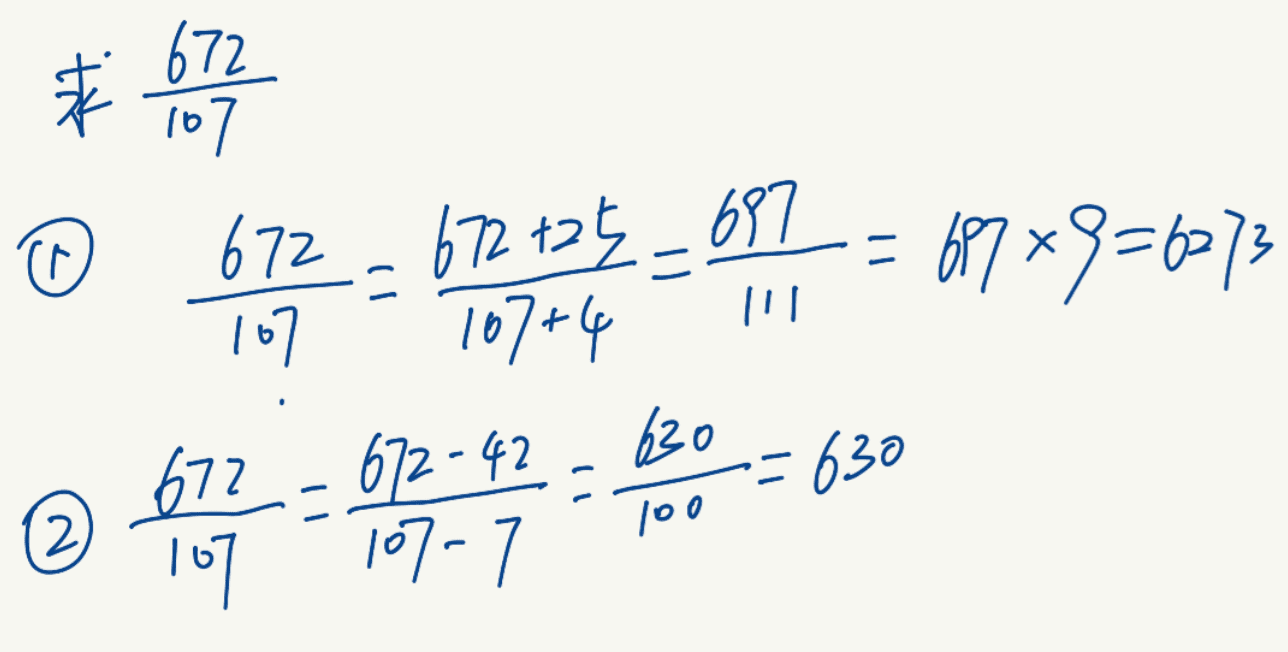 求 672/107
① 672/107 = (672+25)/(107+4) = 697/111 = 697×9=6273
② 672/107 = (672-42)/(107-7) = 630/100 = 630